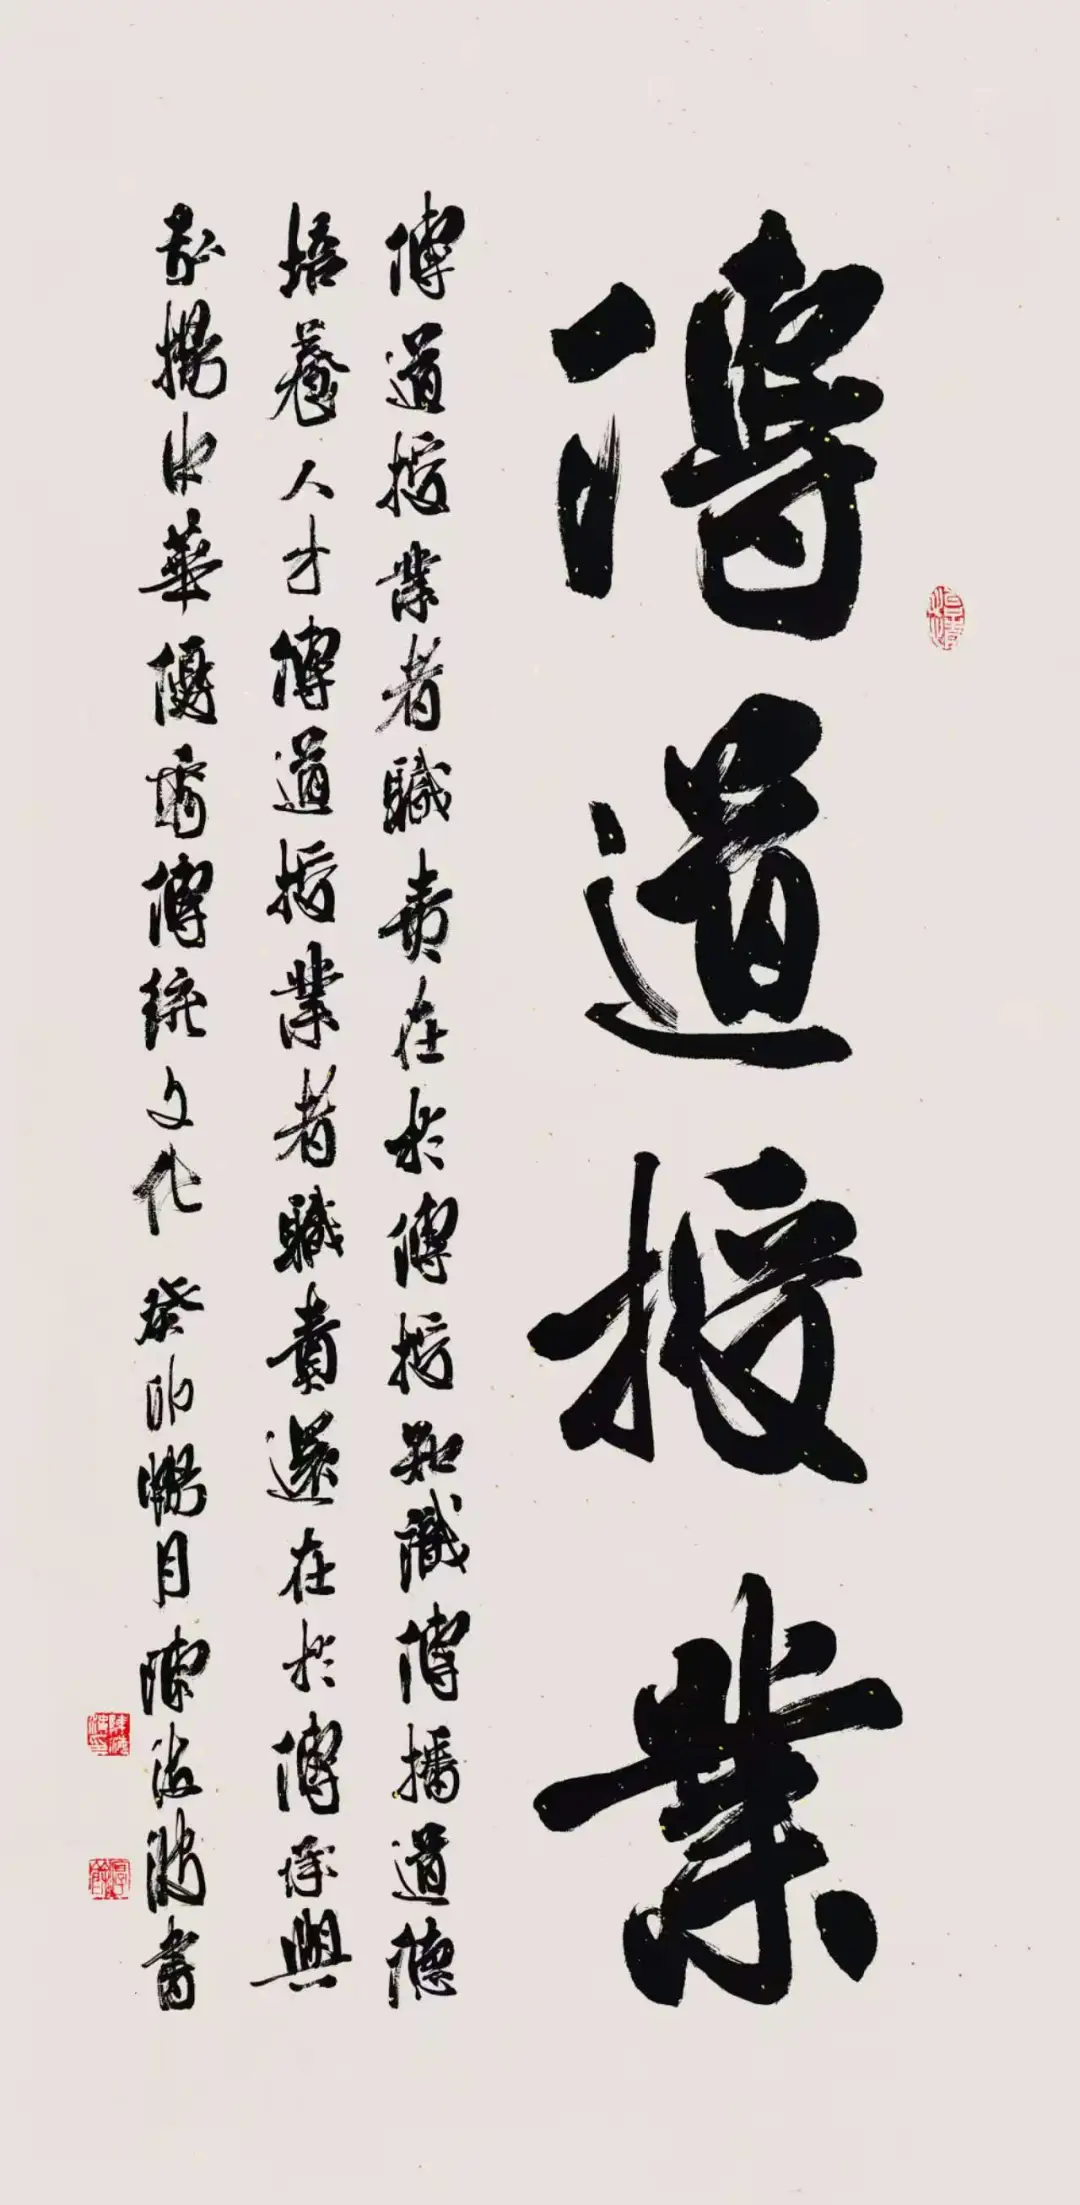 傳道授業
傳道授業者職責在於傳授知識傳播道德
培養人才傳道授業者職責還在於傳承與
揚中華優秀傳統文化 癸卯暢月陳海書